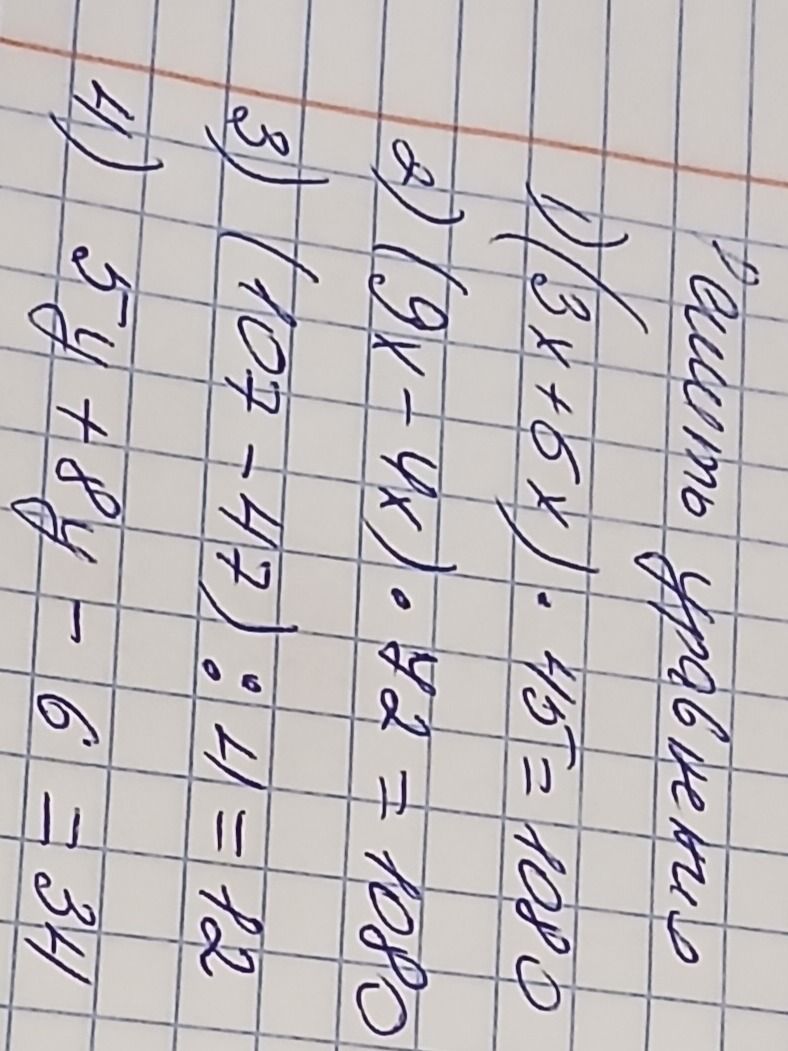 Решить уравнения
1) (3x + 5x) · 45 = 1080
2) (9x - 4x) · 42 = 1080
3) (107 - 47) : 4 = 12
4) 5y + 8y - 6 = 34